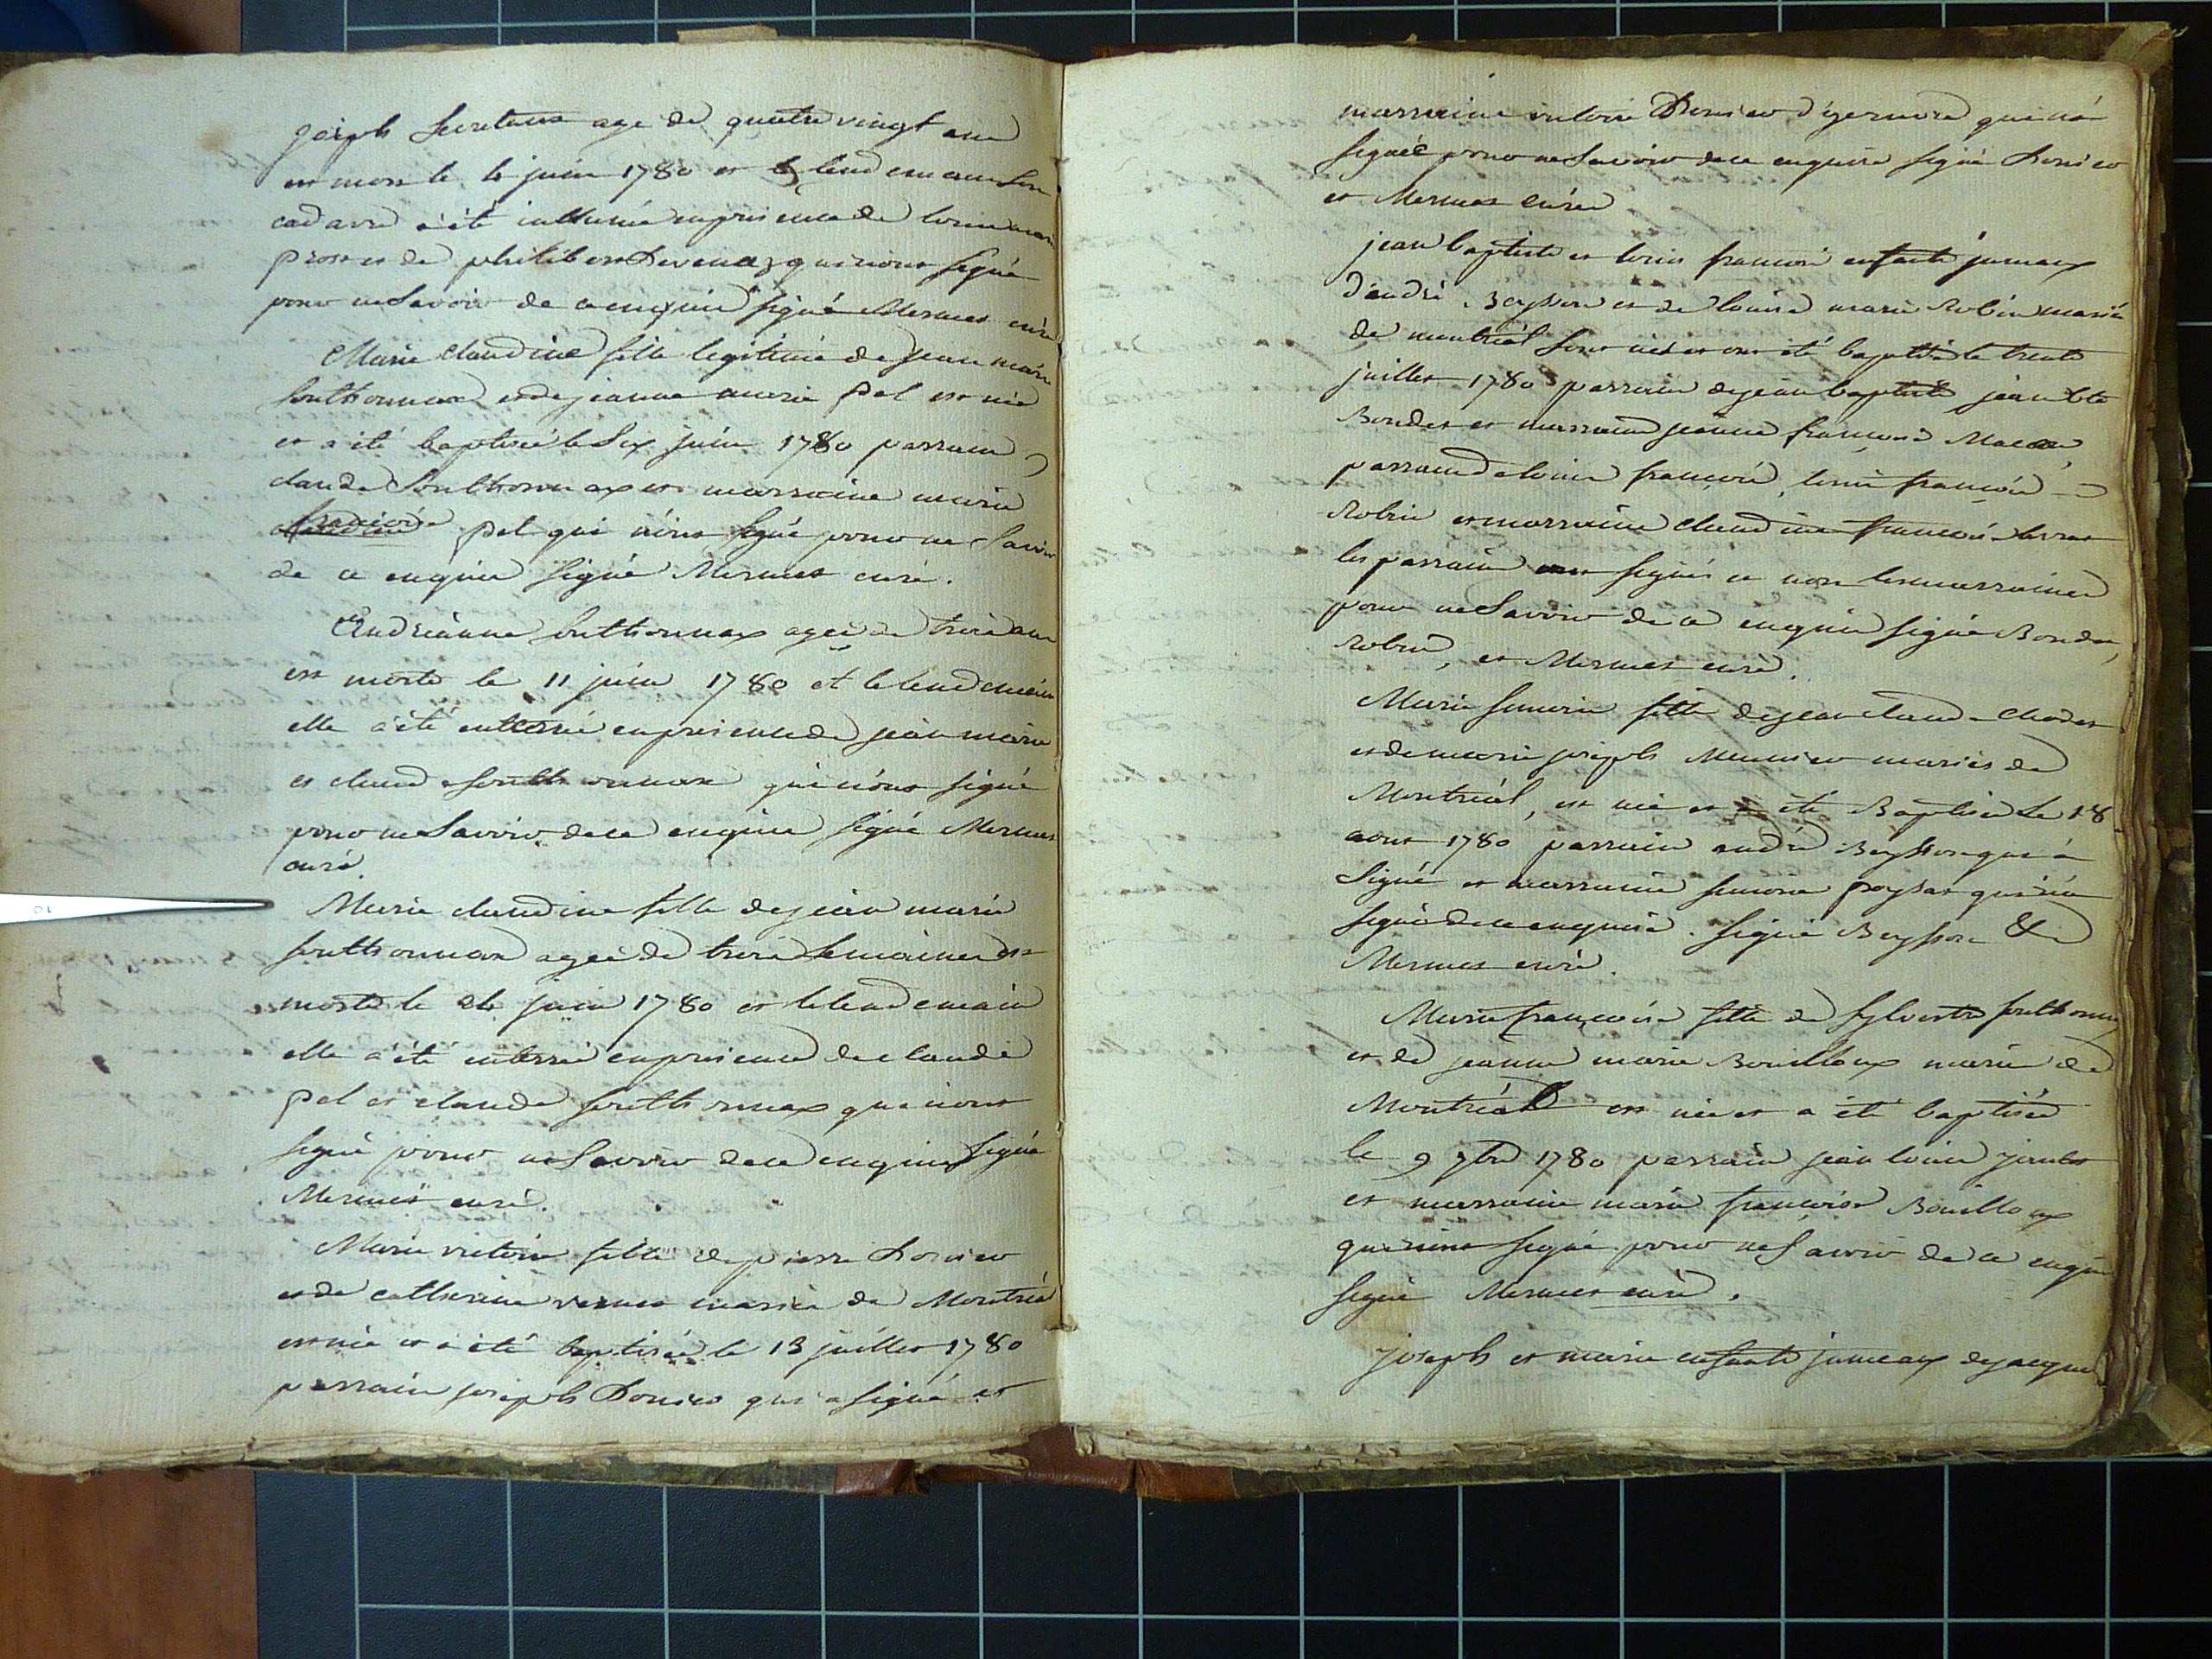 joseph age de quatre vingt ans
est mort le 4 juin 1780 et le lendemain son
cadavre a été inhumé en presence de louis marie
et de philibert qui n'ont signé
pour ne savoir de ce enquis signé Mermet curé
Marie Claudine fille legitime de jean marie
Sonthonnax et de jeanne marie pel est née
et a été baptisée le six juin 1780 parrain
claude Sonthonnax et marraine marie
francoise pel qui n'ont signé pour ne savoir
de ce enquis signé Mermet curé.
Andréanne Sonthonnax agée de trois ans
est morte le 11 juin 1780 et le lendemain
elle a été enterrée en presence de jean marie
et claude Sonthonnax qui n'ont signé
pour ne savoir de ce enquis signé Mermet
curé.
Marie claudine fille de jean marie
Sonthonnax agée de trois semaines est
morte le 24 juin 1780 et le lendemain
elle a été enterrée en presence de claude
pel et claude Sonthonnax qui n'ont
signé pour ne savoir de ce enquis signé
Mermet curé.
Marie victoire fille de pierre
et de catherine mariés de Montréal
est née et a été baptisée le 13 juillet 1780
parrain joseph qui a signé et
marraine victoire qui n'a
signé pour ne savoir de ce enquise signé
et Mermet curé
jean baptiste et louis francois enfants jumeaux
d'andré Beysson et de louise marie Robin mariés
de montréal sont nés et ont été baptisés le trente
juillet 1780 parrain de jean baptiste jean bte
Bondet et marraine jeanne françoise
parrain de louis françois, louis françois
Robin et marraine claudine françoise
les parrains ont signés et non les marraines
pour ne savoir de ce enquis signé Bondet,
Robin, et Mermet curé.
Marie fille de jean claude
et de marie joseph mariés de
Montréal, est née et a été Baptisée le 18
aout 1780 parrain andré Beysson qui a
signé et marraine qui n'a
signé de ce enquise. signé Beysson &
Mermet curé.
Marie françoise fille de Sylvestre Sonthonnax
et de jeanne marie Bouilloux mariés de
Montréal est née et a été baptisée
le 9 7bre 1780 parrain jean louis
et marraine marie françoise Bouilloux
qui n'ont signé pour ne savoir de ce enquis
signé Mermet curé.
joseph et marie enfants jumeaux de jacques